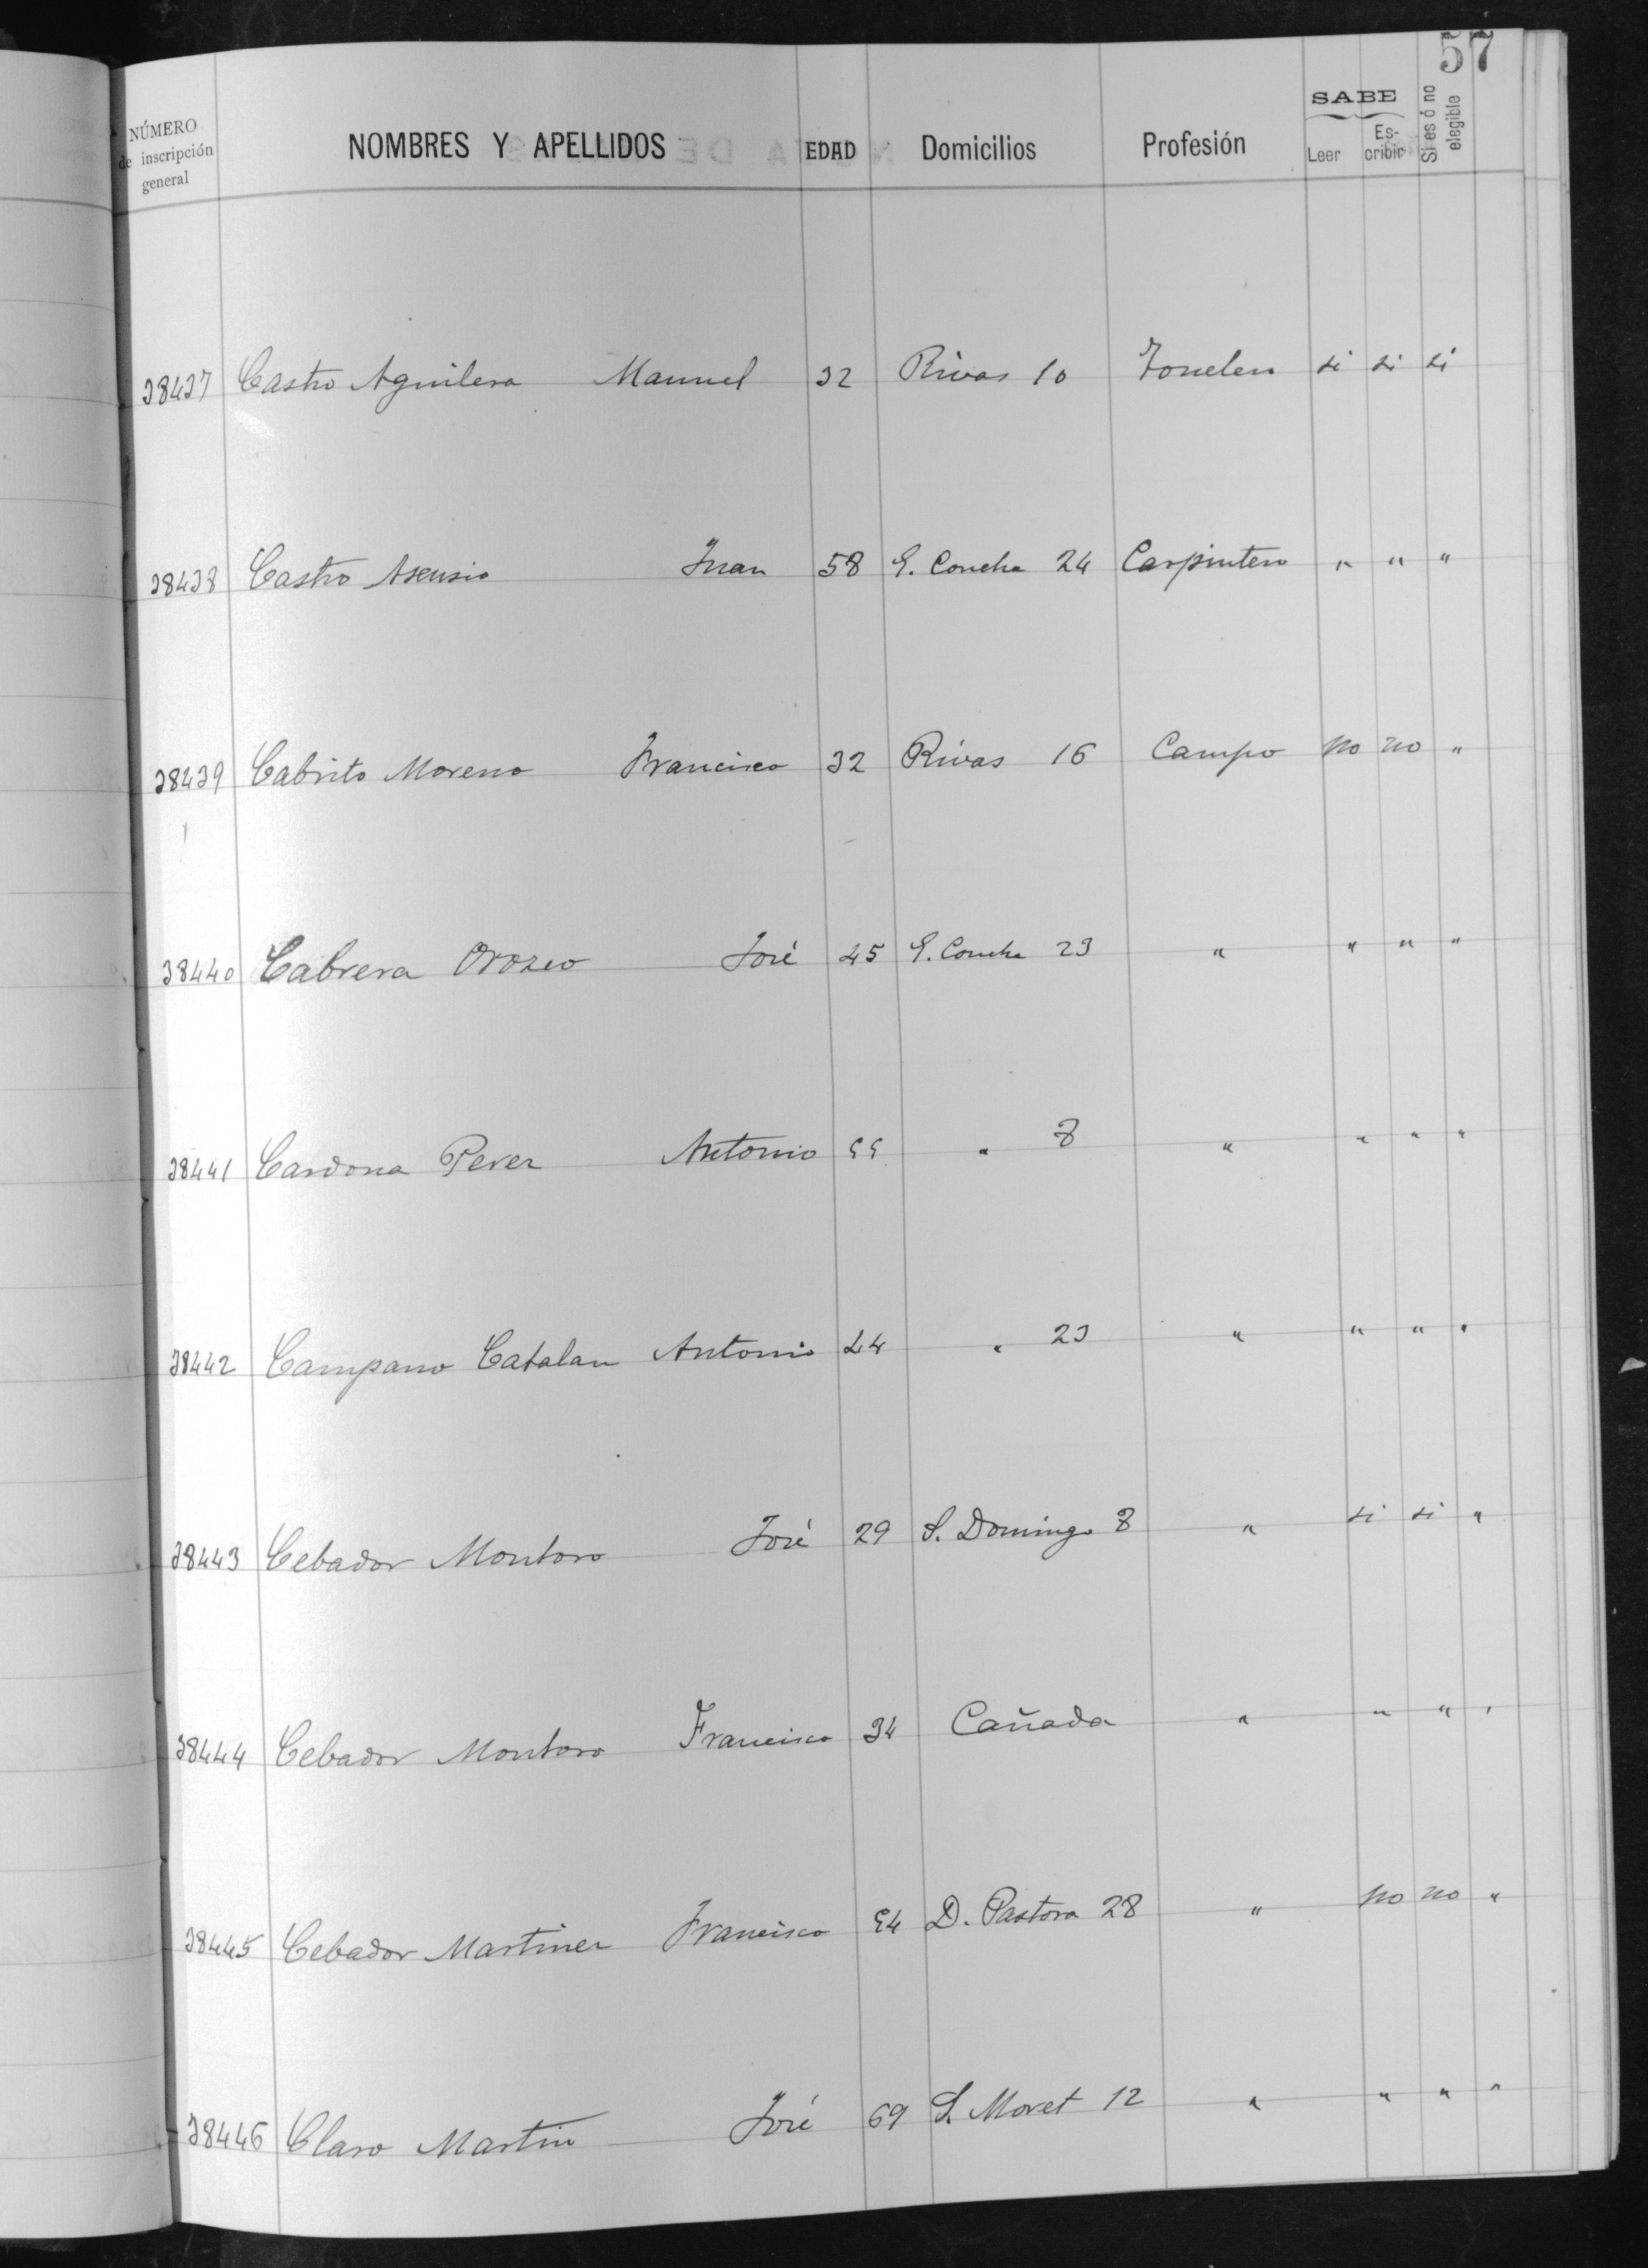 57
NÚMERO de inscripción general NOMBRES Y APELLIDOS EDAD Domicilios Profesión SABE Leer Escribir Si es ó no elegible
38437 Castro Aguilera Manuel 32 Rivas 10 Tonelero si si si
38438 Castro Asensio Juan 58 G. Concha 24 Carpintero " " "
38439 Cabrito Moreno Francisco 32 Rivas 16 Campo no no "
38440 Cabrera Orozco José 45 G. Concha 23 " " " "
38441 Cardona Perez Antonio 55 " 8 " " " "
38442 Campano Catalan Antonio 44 " 23 " " " "
38443 Cebador Montoro José 29 S. Domingo 8 " si si "
38444 Cebador Montoro Francisco 34 Cañada " " " "
38445 Cebador Martinez Francisco 54 D. Pastora 28 " no no "
38446 Claro Martin José 69 S. Moret 12 " " " "